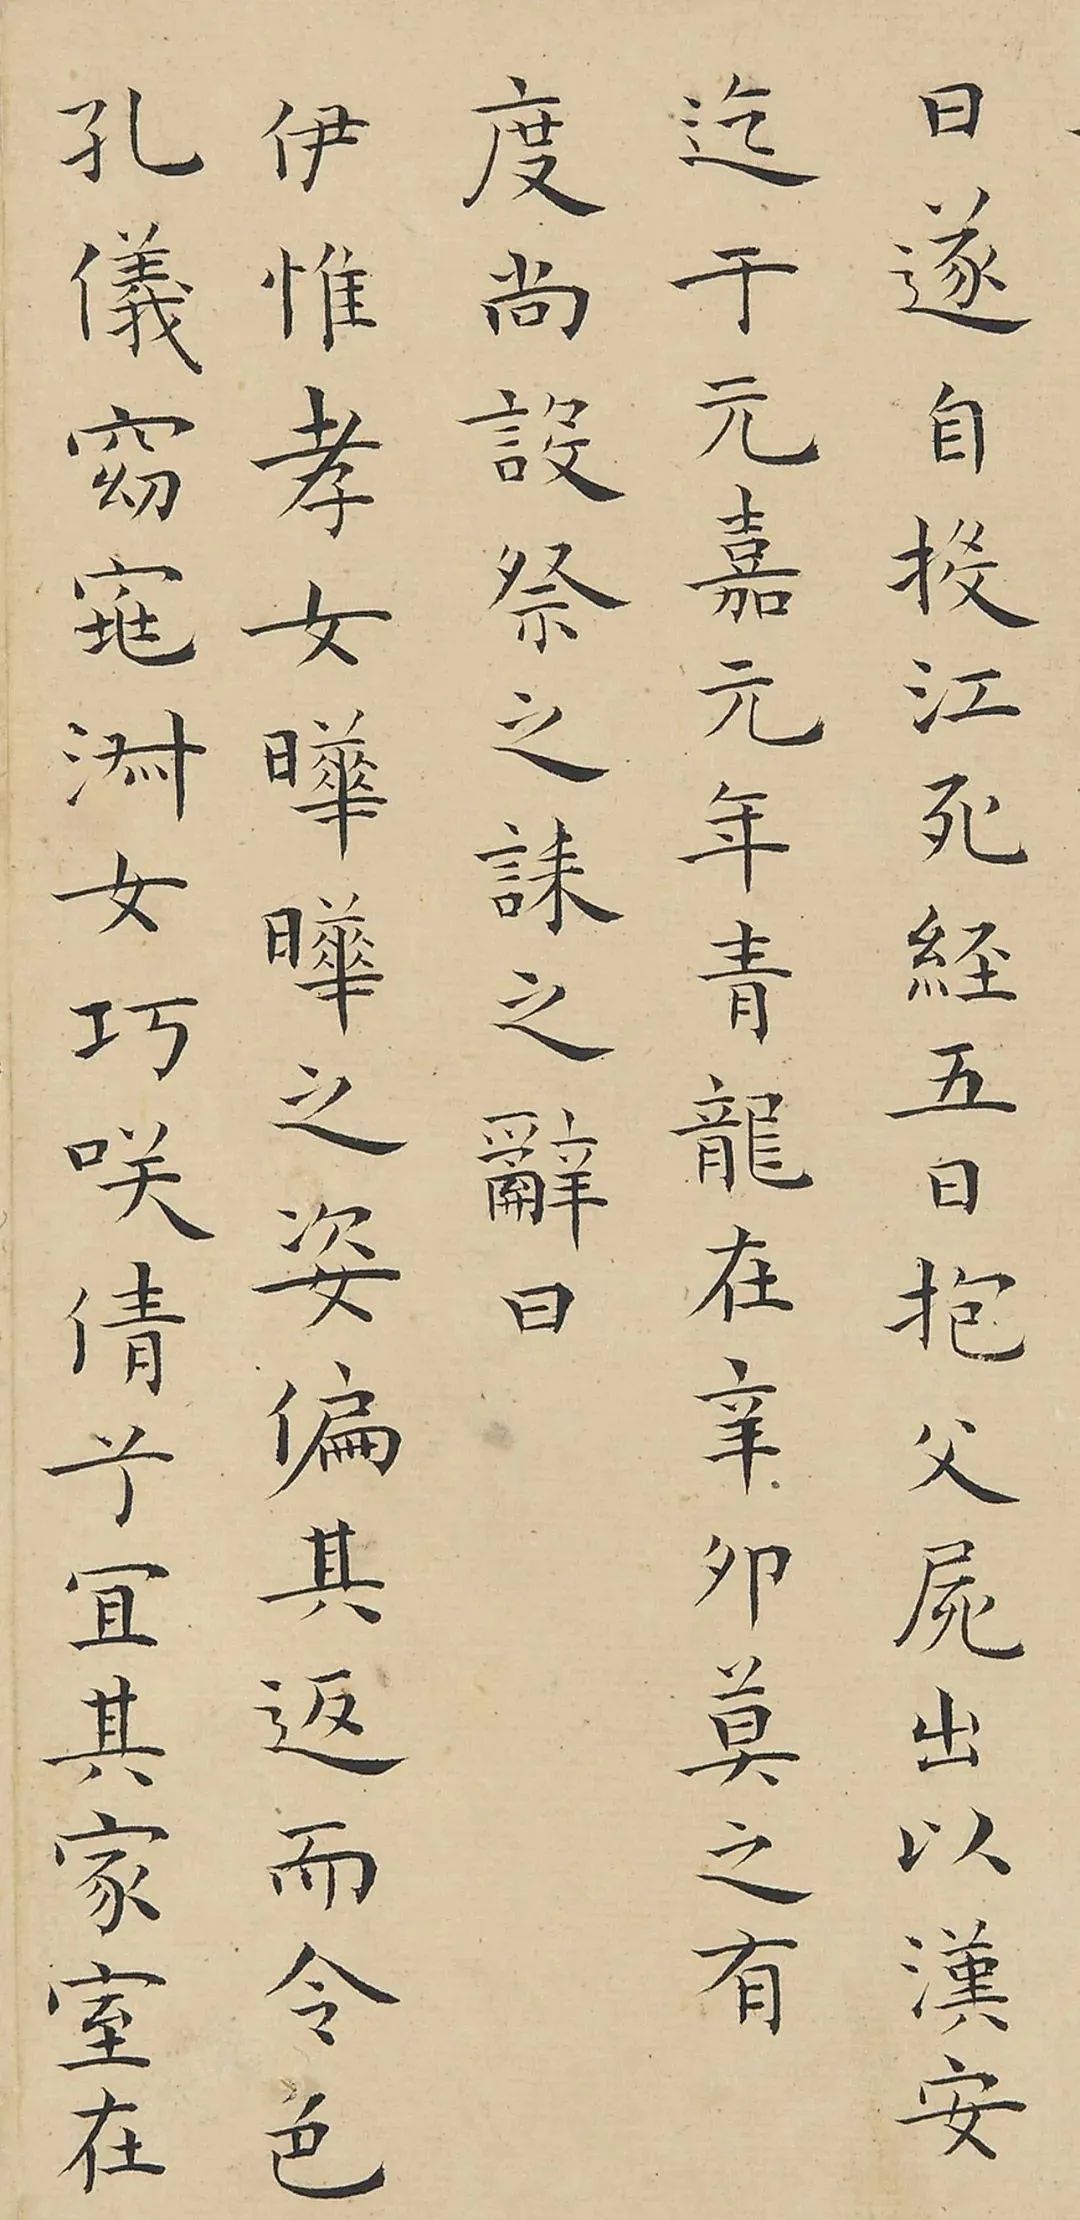 日遂自投江死經五日抱父屍出以漢安
迄于元嘉元年青龍在辛卯莫之有
度尚設祭之誄之辭曰
伊惟孝女曄曄之姿偏其返而令色
孔儀窈窕淑女巧咲倩兮宜其家室在